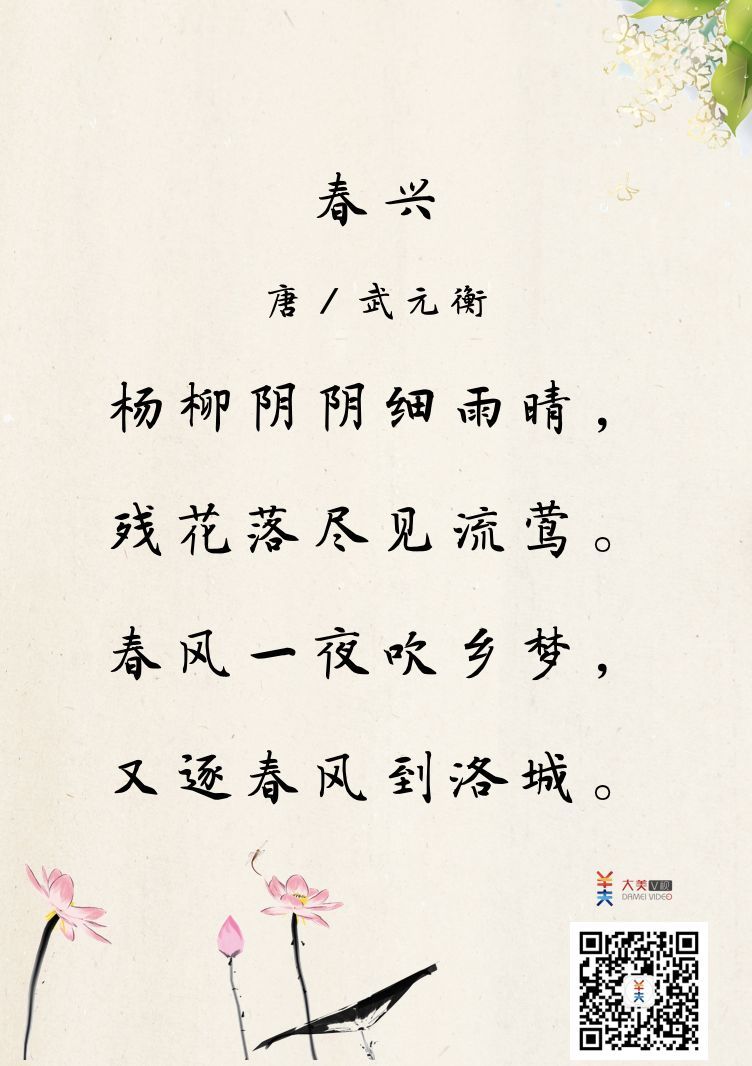 春兴
唐/武元衡
杨柳阴阴细雨晴，
残花落尽见流莺。
春风一夜吹乡梦，
又逐春风到洛城。
大美V视
DAMEI VIDEO